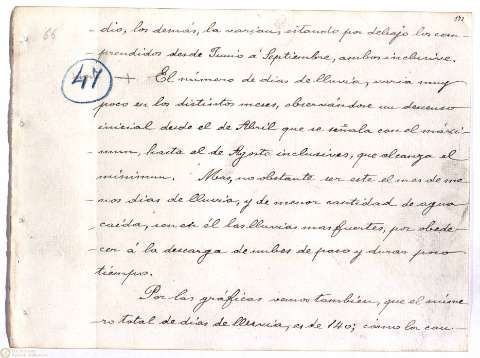 66
dio, los demás, la varian, estando por debajo los com-
prendidos desde Junio á Septiembre, ambos inclusive.
47
+ El número de dias de lluvia, varia muy
poco en los distintos meses, observándose un descenso
inicial desde el de Abril que se señala con el máxi-
mum, hasta el de Agosto inclusives, que alcanza el
mínimum. Mas, no obstante ser este el mes de me-
nos dias de lluvia, y de menor cantidad de agua
caida, son en él las lluvias mas fuertes, por obede-
cer á la descarga de nubes de paso y duran poco
tiempo.
Por las gráficas vemos tambien, que el núme-
ro total de dias de lluvia, es de 140; cómo los con-